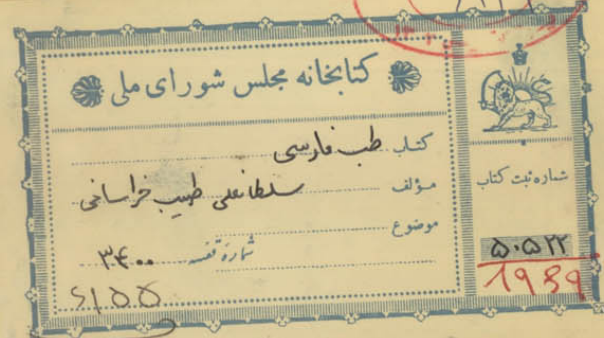 کتابخانه مجلس شورای ملی
کتاب طب فارسی
مؤلف سلطانعلی طبیب خراسانی
موضوع
شماره قفسه ۳۴۰۰
۶۱۵۵
شماره ثبت کتاب
۵۰۵۲۲
1989